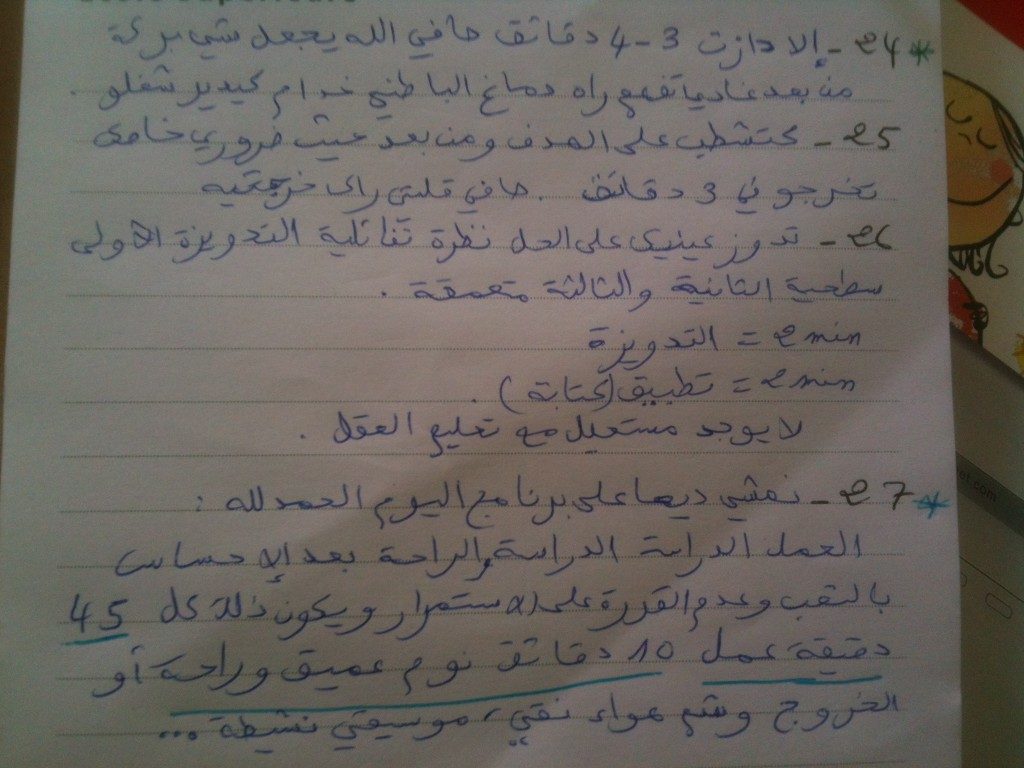 * 24 - إلا دازت 3-4 دقائق صافي الله يجعل شي بركة
من بعد غاديا تفهم راه دماغ الباطني خدام كيدير شغلو .
25 - كتشطب على الهدف ومن بعد حيث ضروري خاصك
تخرجو في 3 دقائق . صافي قلتي راك خرجتيه
26 - تدوز عينيك على الحل نظرة تفائلية التدويزة الأولى
سطحية الثانية والثالثة متعمقة .
2 min = التدويزة
2 min = تطبيق (كتابة) .
لا يوجد مستحيل مع تعليم العقل .
* 27 - نمشي ديما على برنامج اليوم الحمد لله :
العمل الدراسة الدراسة والراحة بعد الإحساس
بالتعب وعدم القدرة على الاستمرار ويكون ذلك كل 45
دقيقة عمل 10 دقائق نوم عميق وراحة أو
الخروج وشم هواء نقي، موسيقى نشيطة ...